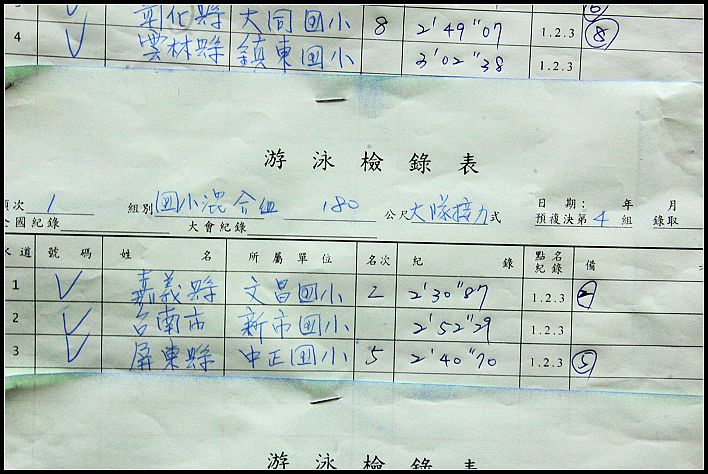 彰化縣 大同國小 8 2'49"07 1.2.3 ⑧
4 雲林縣 鎮東國小 3'02"38 1.2.3
游泳檢錄表
項次 1 組別 国小混合組 180 公尺 大隊接力 式 日期: 年 月
全國紀錄 大會紀錄 預複決第 4 組 錄取
水道 號碼 姓名 所屬單位 名次 紀錄 點名紀錄 備
1 ✓ 嘉義縣 文昌国小 2 2'30"87 1.2.3 ②
2 ✓ 台南市 新市国小 2'52"29 1.2.3
3 ✓ 屏東縣 中正国小 5 2'40"70 1.2.3 ⑤
游泳檢錄表